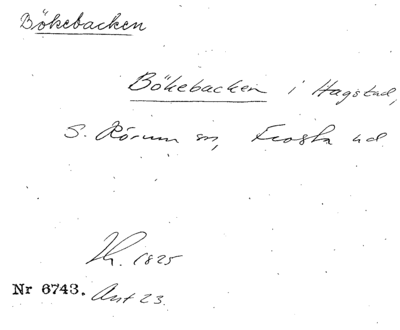 Bökebacken
Bökebacken i Hagstad,
S. Rörum sn, Frosta hd
Th. 1825
Nr 6743. Ant 23.